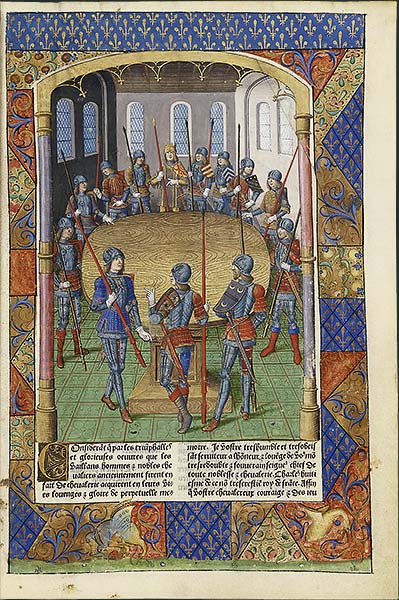 Considerãt q̃ par les triũphalles
et glorieuses oeuvres que les
vaillans hommes & nobles che
valiers anciennement firent en
fait de chevalerie acquirent en leurs vi
es louenges & gloire de perpetuelle me
moire. Je vostre treshumble et tresobeis
sãt serviteur a lhõneur, & louẽge de vo9 mõ
tresredoubte & souverain seigr̃ chief de
toute noblesse & chevalerie Charles huiti
esme de ce nõ roy de frãce. Affin
q̃ vostre chevalereux couraige & des ieu